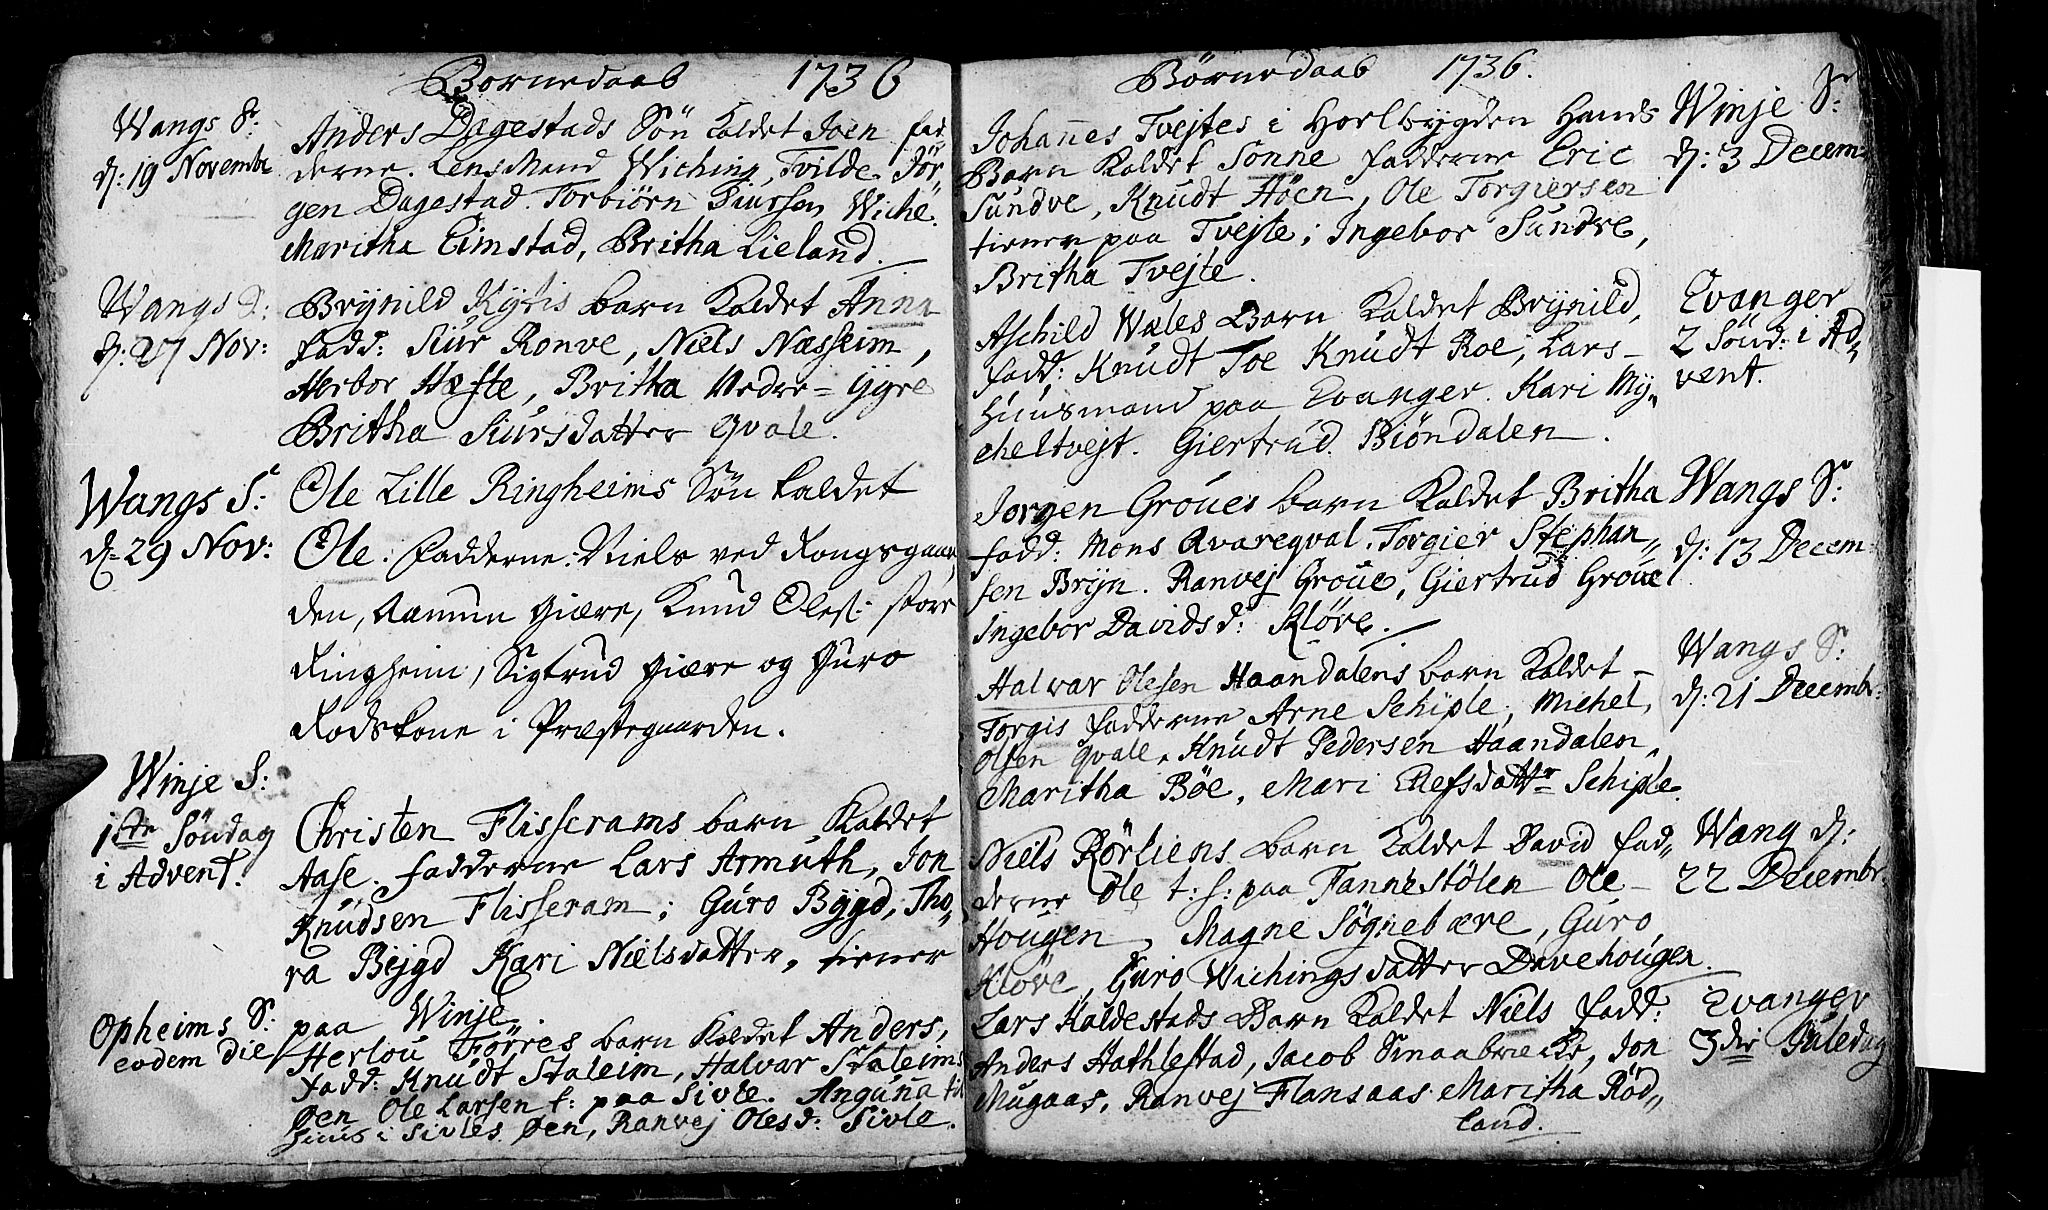 Börnedaab 1736
Wangs S:
d: 19 Novembr
Anders Dagestads Sön kaldet Joen fad-
derne. Lens Mand Wiching Tvilde. Jör
gen Dagestad. Torbiörn Siursen Wiche.
Maritha Eimstad, Britha Lieland.
Wangs S:
d: 27 Nov:
Brynild Kytis barn kaldet Anna
fadd: Siur Ronve, Niels Næsheim,
Herbor Hæfte, Britha Nedre=Gjgre
Britha Siursdatter Qvale.
Wangs S:
d= 29 Nov:
Ole Lille Ringheims Sön kaldet
Ole. Fadderne: Niels ved Kongsgaar,
den, Aamun Giære, Knud Oles: store
Ringheim, Sigtrud Giære og Guro
Kodskone i Præstegaarden.
Winje S:
1ste Söndag
i Advent.
Christen Flisserams barn kaldet
Aase. fadderne Lars Armuth, Jon
Knudsen Flisseram; Guro Bygd, Tho„
ra Bejgd Kari Nielsdatter, tiener
paa Winje.
Opheims S:
eodem die
Herlou Förres barn kaldet Anders,
fadd: Knudt Staleim, Halvar Staleims
Øen Ole Larsen t: paa Sivle. Anguna til
huus i Sivles Øen, Ranvej Olesd: Sivle.
Börnedaab 1736.
Johannes Tvejtes i Horlbygden Hands
Barn kaldet Sonne fadderne Eric
Sundve, Knudt Höen, Ole Torgiersen
tiener paa Tvejte; Ingebor Sundve,
Britha Tvejte.
Winje S:
d: 3 Decem:
Aschild Wæles Barn kaldet Brynild,
fadd: Knudt Toe Knudt Roe, Lars-
Huusmand paa Evanger. Kari My„
cheltvejt. Giertrud Biöndalen.
Evanger
2 Sönd: i Ad„
vent.
Jorgen Gröues barn kaldet Britha
fadd: Mons Qvareqval. Torgier Stephan„
sen Bryn. Ranvej Gröue, Giertrud Gröue
Ingebor Davids d: Klöve.
Wangs S:
d: 13 Decem-
Halvar Olesen Haandalens barn kaldet -
Torgis fadderne Arne Schiple, Michel,
Olsen Qvale. Knudt Pedersen Haandalen,
Maritha Böe, Mari Elefsdattr Schiple.
Wangs S:
d: 21 Decembr:
Niels Rörliens barn kaldet David fad„
derne Ole t: h: paa Fannestölen Ole -
Hougen, Magne Sögnebære, Guro
Klöve, Guro Wichingsdatter Davehougen.
Wang d:
22 Decembr.
Lars Kaldestads Barn kaldet Niels fadd:
Anders Hathlestad, Jacob Smaabrecke, Jon
Mugaas, Ranvej Flansaas Maritha Röd„
land.
Evanger
3die Juledag